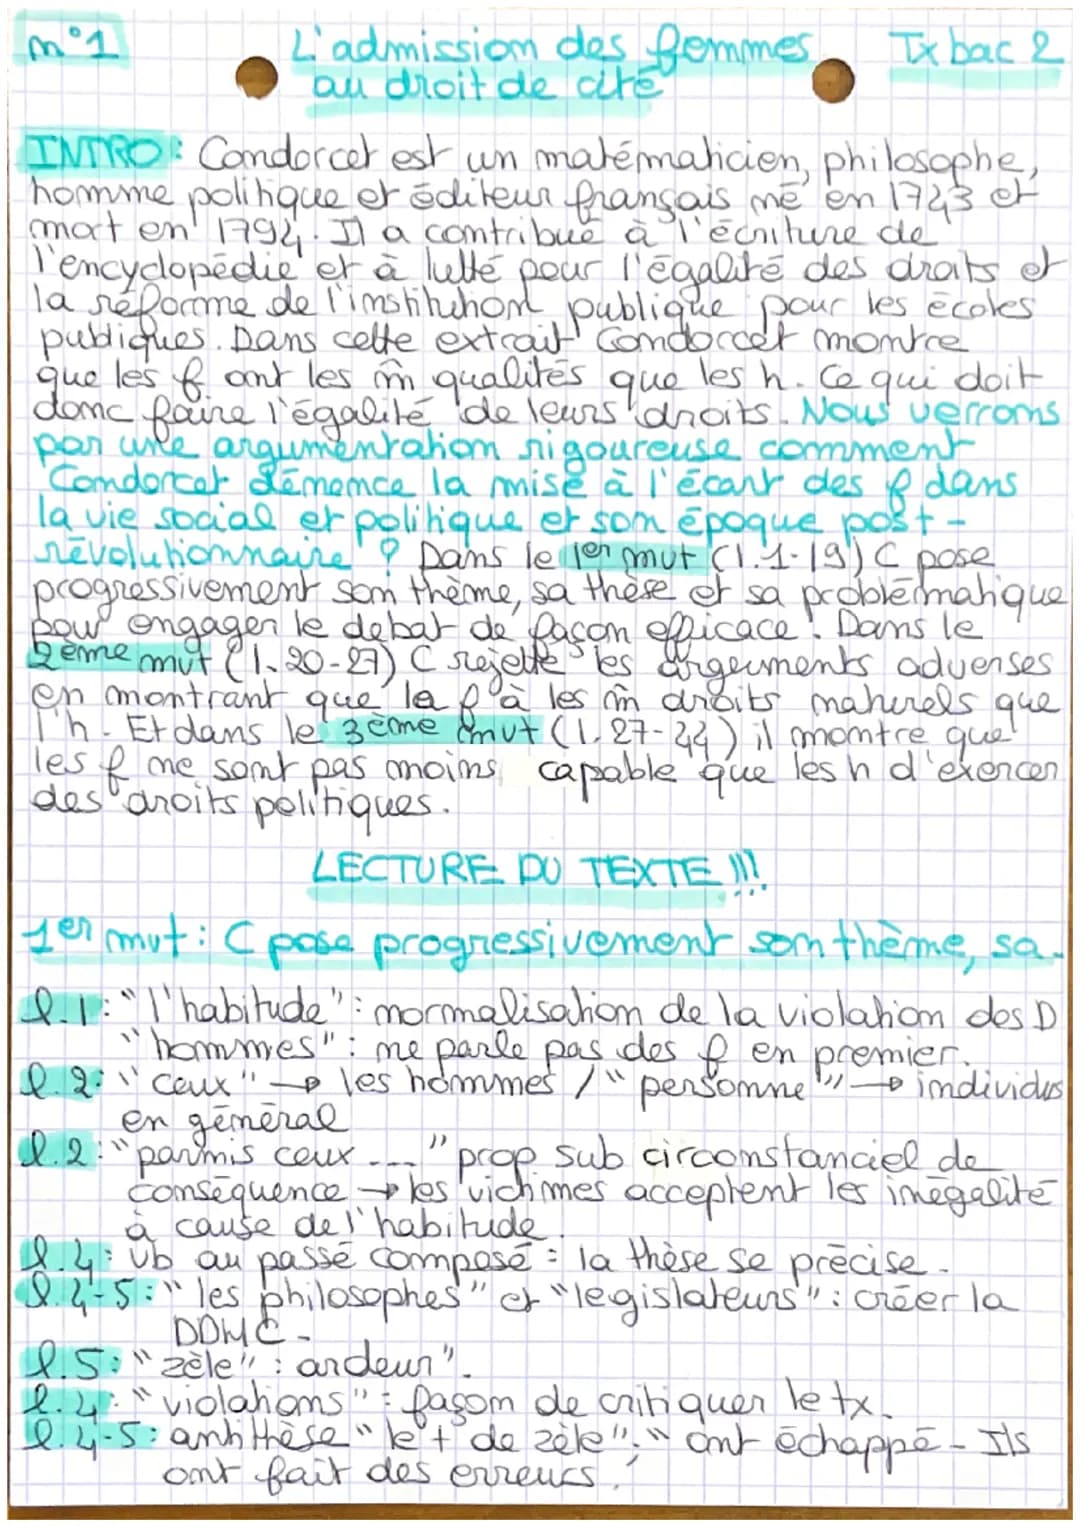 n°1 L'admission des femmes Tx bac 2
au droit de cité
INTRO: Condorcet est un matématicien, philosophe,
homme politique et éditeur français né en 1743 et
mort en 1794. Il a contribué à l'écriture de
l'encyclopédie et à lutté pour l'égalité des droits et
la réforme de l'instituhon publique pour les écoles
publiques. Dans cette extrait Condorcet montre
que les f ont les m̂ qualités que les h. Ce qui doit
donc faire l'égalité de leurs droits. Nous verrons
par une argumentation rigoureuse comment
Condorcet dénonce la mise à l'écart des f dans
la vie social et politique et son époque post-
révolutionnaire ? Dans le 1er mvt (l.1-19) C pose
progressivement son thème, sa thèse et sa problématique
pour engager le débat de façon efficace. Dans le
2ème mvt (l.20-27) C rejette les arguments adverses
en montrant que la f à les m̂ droits naturels que
l'h. Et dans le 3ème mvt (l.27-44) il montre que
les f ne sont pas moins capable que les h d'exercer
des droits politiques.
LECTURE DU TEXTE !!!
1er mvt : C pose progressivement son thème, sa..
l.1: "l'habitude": normalisation de la violation des D
"hommes": ne parle pas des f en premier.
l.2: "ceux" → les hommes / "personne" → individus
en général
l.2: "parmis ceux ..." prop sub circonstanciel de
conséquence → les victimes acceptent les inégalité
à cause de l'habitude.
l.4: vb au passé composé : la thèse se précise.
l.4-5: "les philosophes" et "legislateurs": créer la
DDHC.
l.5: "zèle" : ardeur".
l.4: "violations": façon de critiquer le tx.
l.4-5: antithèse "le + de zèle"; "ont échappé - Ils
ont fait des erreurs.